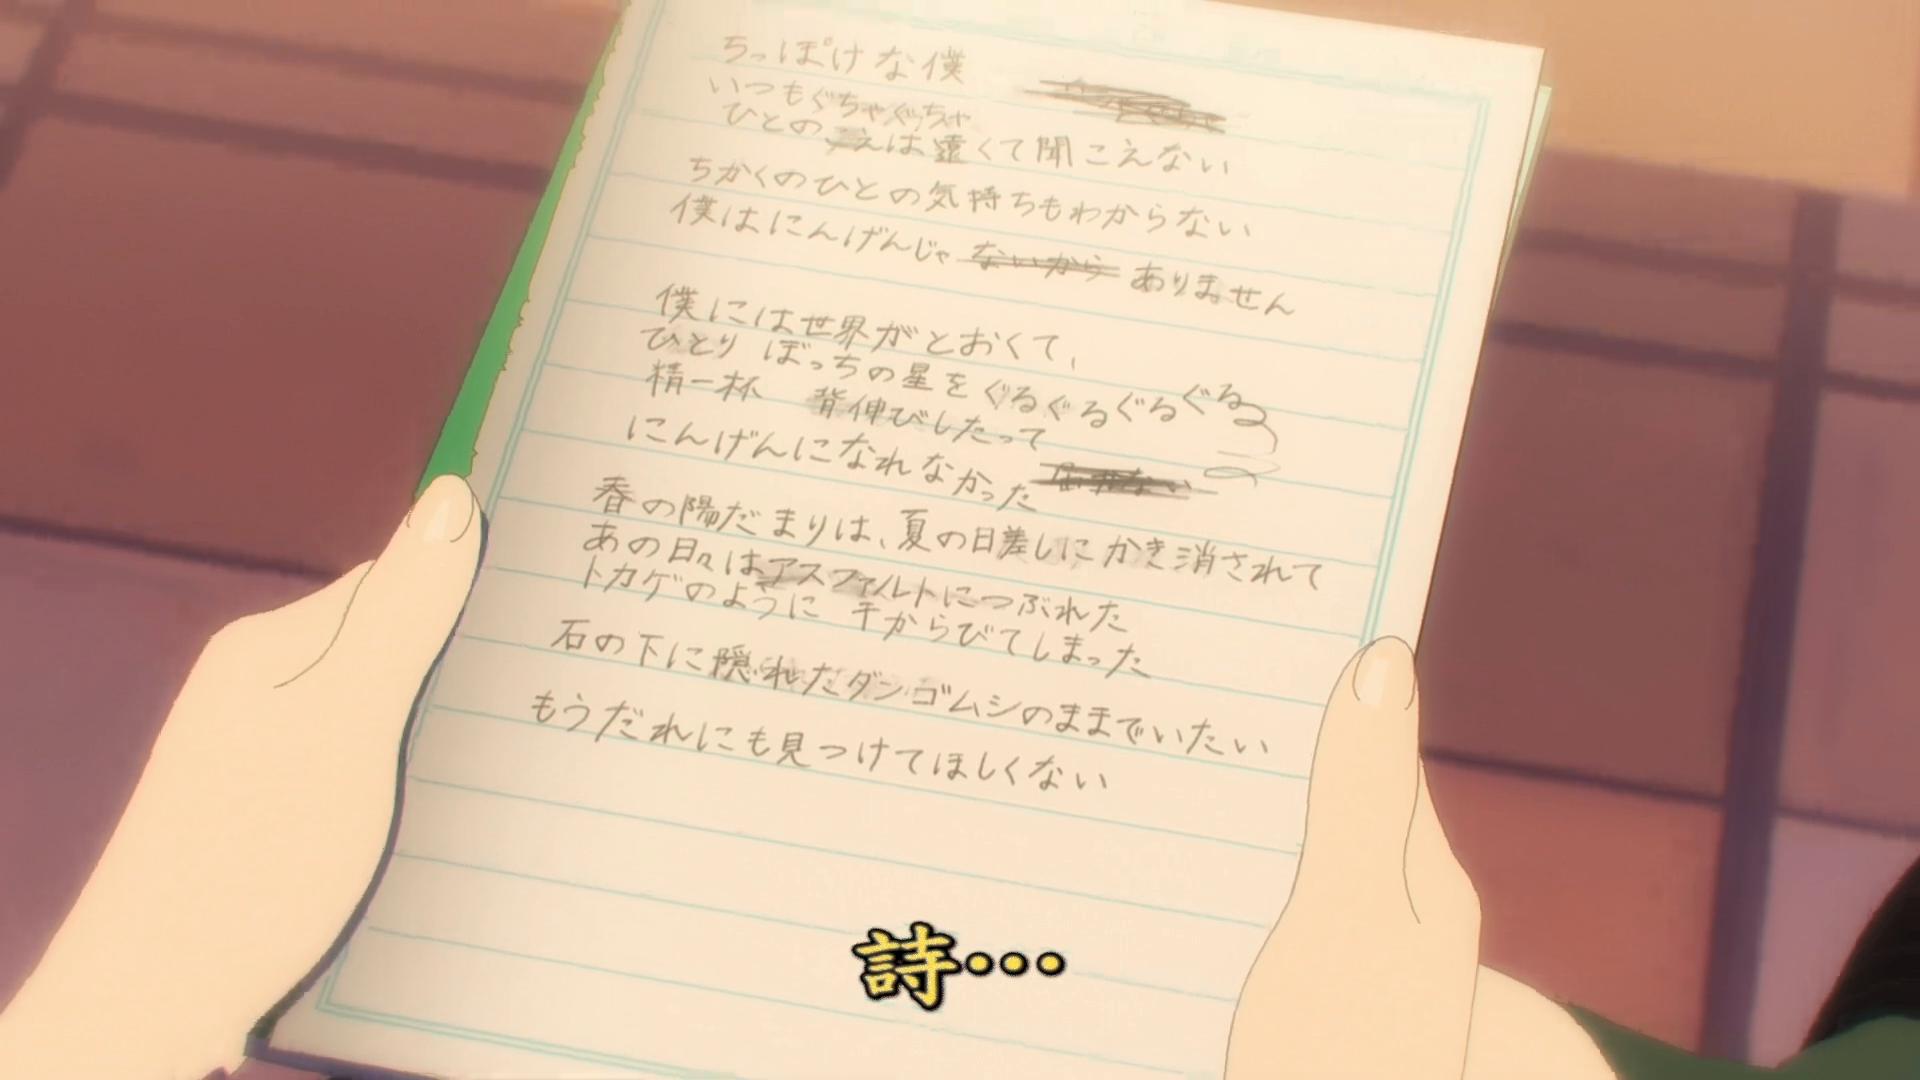 ちっぽけな僕
いつもぐちゃぐちゃ
ひとの こえは遠くて聞こえない
ちかくのひとの気持ちもわからない
僕はにんげんじゃ ないから ありません
僕には世界がとおくて、
ひとり ぼっちの星をぐるぐるぐるぐる
精一杯 背伸びしたって
にんげんになれなかった
春の陽だまりは、夏の日差しにかき消されて
あの日々はアスファルトにつぶれた
トカゲのように 干からびてしまった
石の下に隠れたダンゴムシのままでいたい
もうだれにも見つけてほしくない
詩…